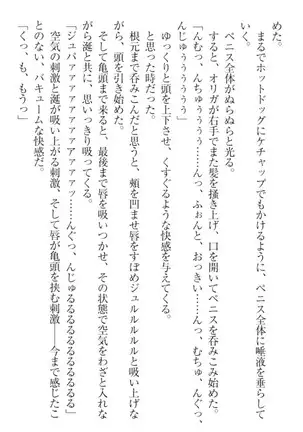 めた。
　まるでホットドッグにケチャップでもかけるように、ペニス全体に唾液を垂らして
いく。
　ペニス全体がぬらぬらと光る。
　すると、オリガが右手でまた髪を掻き上げ、口を開いてペニスを呑みこみ始めた。
「んむっ、んちゅぅぅぅぅっ……んっ、ふぉんと、おっきい……んっ、むちゅ、んぐっ、
んじゅぅぅぅぅぅっ」
　ゆっくりと頭を上下させ、くすぐるような快感を与えてくる。
　と思った時だった。
　根元まで呑みこんだと思うと、頬を凹ませ唇をすぼめジュルルルルルと吸い上げな
がら、頭を引き始めた。
　そして亀頭まで来ると、最後まで唇を吸いつかせ、で空気をわざと入れな
がら涎と共に、思いっきり吸ってくる。
「ジュパァァァァァァァァァァァッ……んぐっ、んじゅるるるるるるるるる」
　空気の刺激と涎が吸い上がる刺激、そして唇が亀頭を挟む刺激――今まで感じたこ
とのない、バキュームな快感だ。
「くっ、も、もうっ」